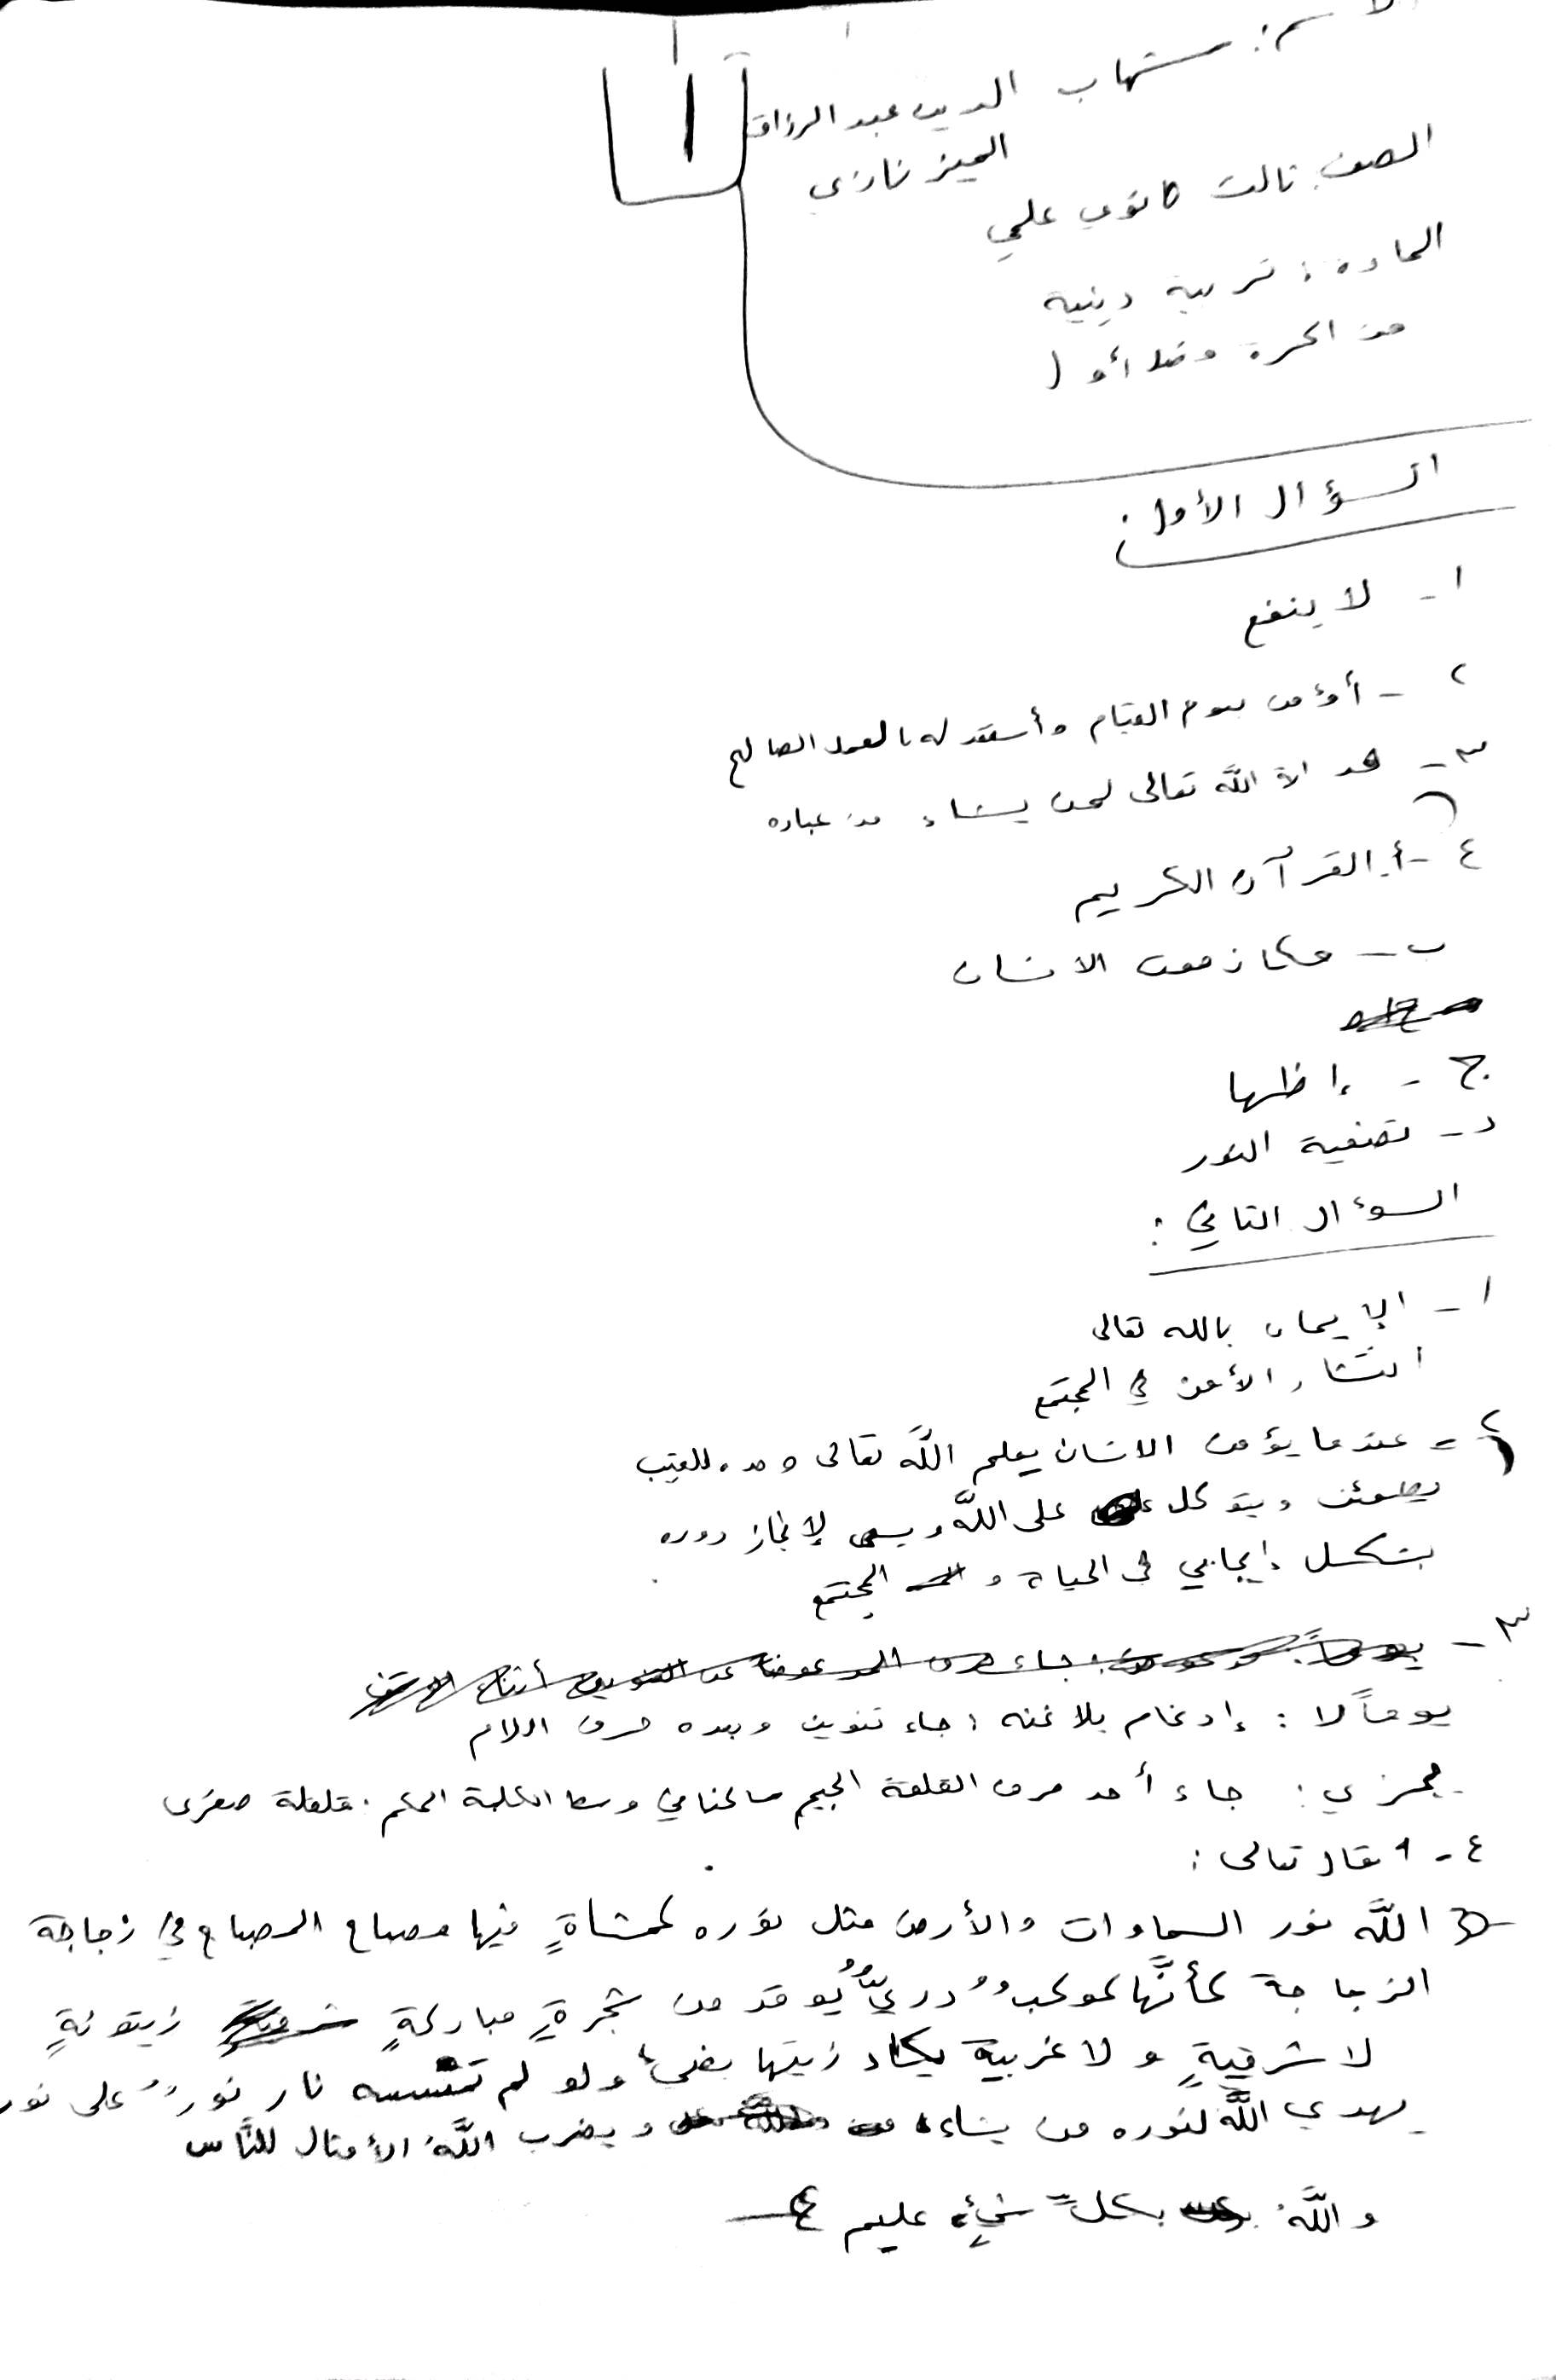 الاسم: شهاب الدين عبد الرزاق
١
الصف ثالث ثانوي علمي
المادة: تربية دينية
السؤال الأول:
١- لا ينفع
٢- أؤمن بيوم القيام وأستعد له بالعمل الصالح
٣- الله تعالى لمن يشاء من عباده
٤- أ. القرآن الكريم
ب- الانسان
ج- إظلها
د- تصفية النور
السؤال الثاني:
١- الإيمان بالله تعالى
انتشار الأمن في المجتمع
٢- عندما يؤمن الانسان يعلم الله تعالى وحده للغيب
يطمئن ويتوكل على الله ويسعى لإنجاز دوره
بشكل إيجابي في الحياة و المجتمع
٣-
يوماً لا: إدغام بلا غنه، جاء تنوين وبعده حرف اللام
يجزي: جاء أحد حرف القلقة الجيم ساكنا في وسط الكلمة الحكم: قلقلة صغرى
٤- قال تعالى:
الله نور السماوات والأرض مثل نوره كمشاةٍ فيها مصباح المصباح في زجاجة
الزجاجة كأنَّها كوكبٌ دريٌّ يُوقد من شجرةٍ مباركةٍ زيتونةٍ
لا شرقيةٍ ولا غربية يكاد زيتها يضيء ولو لم تمسسه نار نورٌ على نور
يهدي اللَّه لنوره من يشاء ويضرب اللَّهُ الأمثال للنَّاس
واللَّهُ بكلِّ شيءٍ عليم